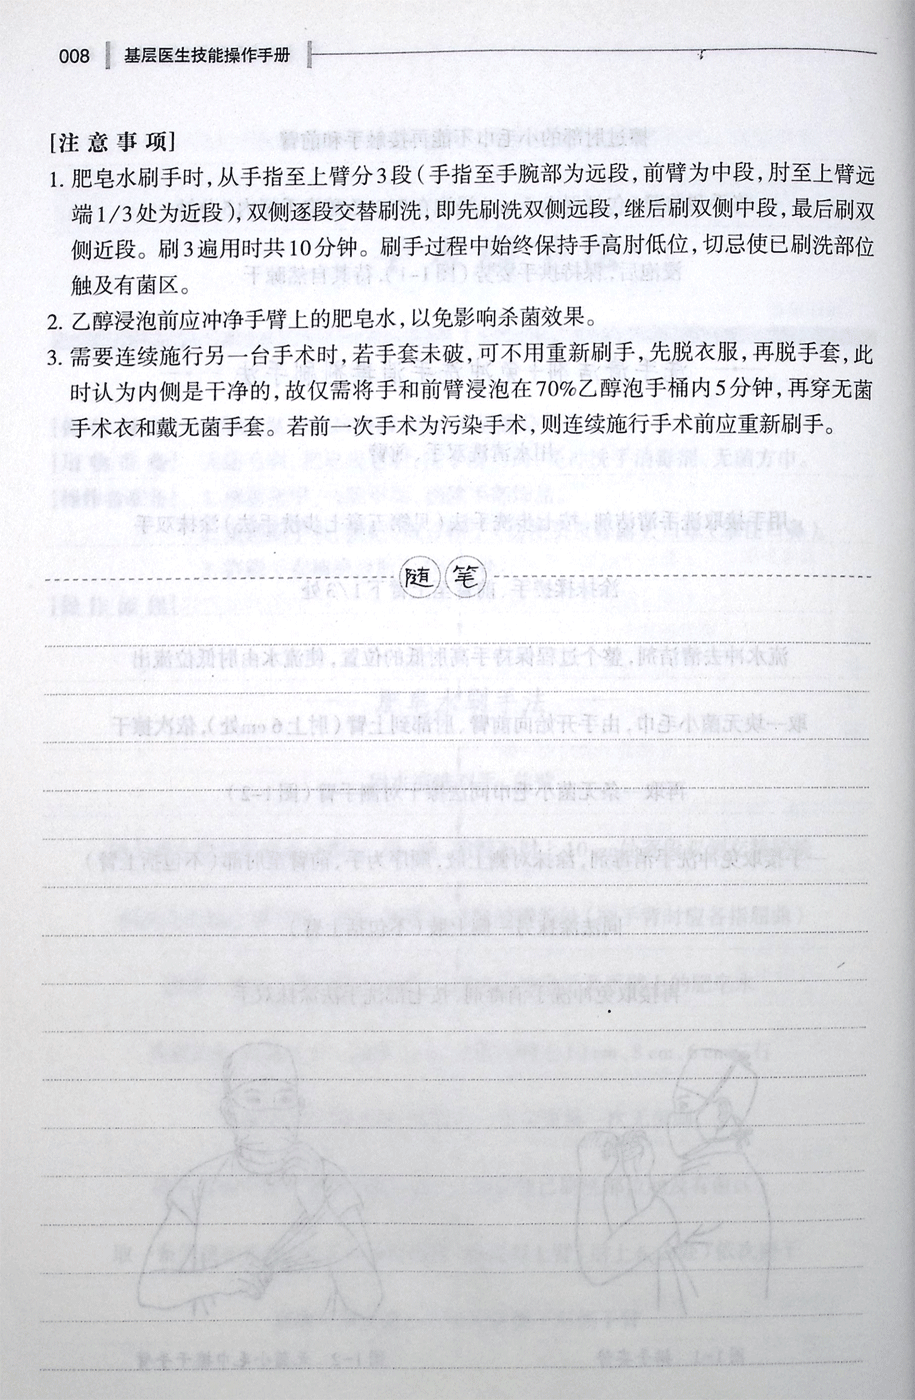 008 基层医生技能操作手册
[注意事项]
1. 肥皂水刷手时，从手指至上臂分3段（手指至手腕部为远段，前臂为中段，肘至上臂远
端1/3处为近段），双侧逐段交替刷洗，即先刷洗双侧远段，继后刷双侧中段，最后刷双
侧近段。刷3遍用时共10分钟。刷手过程中始终保持手高肘低位，切忌使已刷洗部位
触及有菌区。
2. 乙醇浸泡前应冲净手臂上的肥皂水，以免影响杀菌效果。
3. 需要连续施行另一台手术时，若手套未破，可不用重新刷手，先脱衣服，再脱手套，此
时认为内侧是干净的，故仅需将手和前臂浸泡在70%乙醇泡手桶内5分钟，再穿无菌
手术衣和戴无菌手套。若前一次手术为污染手术，则连续施行手术前应重新刷手。
随笔